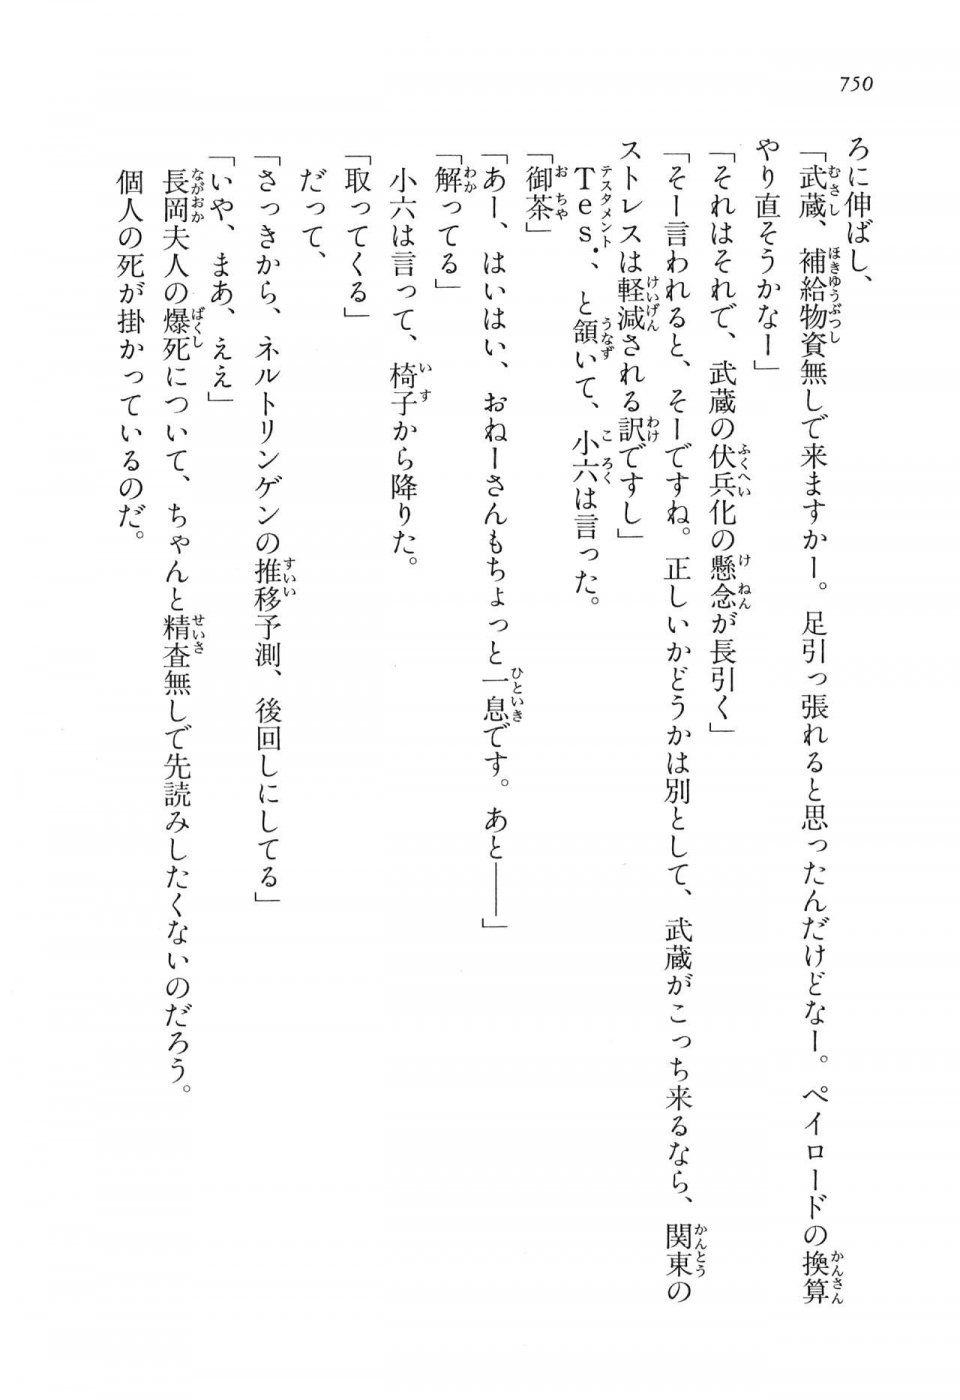 750
ろに伸ばし、
「武蔵、補給物資無しで来ますかー。足引っ張れると思ったんだけどなー。ペイロードの換算
やり直そうかなー」
「それはそれで、武蔵の伏兵化の懸念が長引く」
「そー言われると、そーですね。正しいかどうかは別として、武蔵がこっち来るなら、関東の
ストレスは軽減される訳ですし」
Tes.、と頷いて、小六は言った。
「御茶」
「あー、はいはい、おねーさんもちょっと一息です。あと――」
「解ってる」
小六は言って、椅子から降りた。
「取ってくる」
だって、
「さっきから、ネルトリンゲンの推移予測、後回しにしてる」
「いや、まあ、ええ」
長岡夫人の爆死について、ちゃんと精査無しで先読みしたくないのだろう。
個人の死が掛かっているのだ。